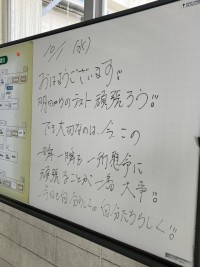 10/1 (水)
おはようございます!!
明日からのテスト頑張ろう!!
でも大切なのは、今この
一瞬一瞬を一所懸命に
頑張ることが一番大事!!
今日も自分らしく。自分たちらしく!!